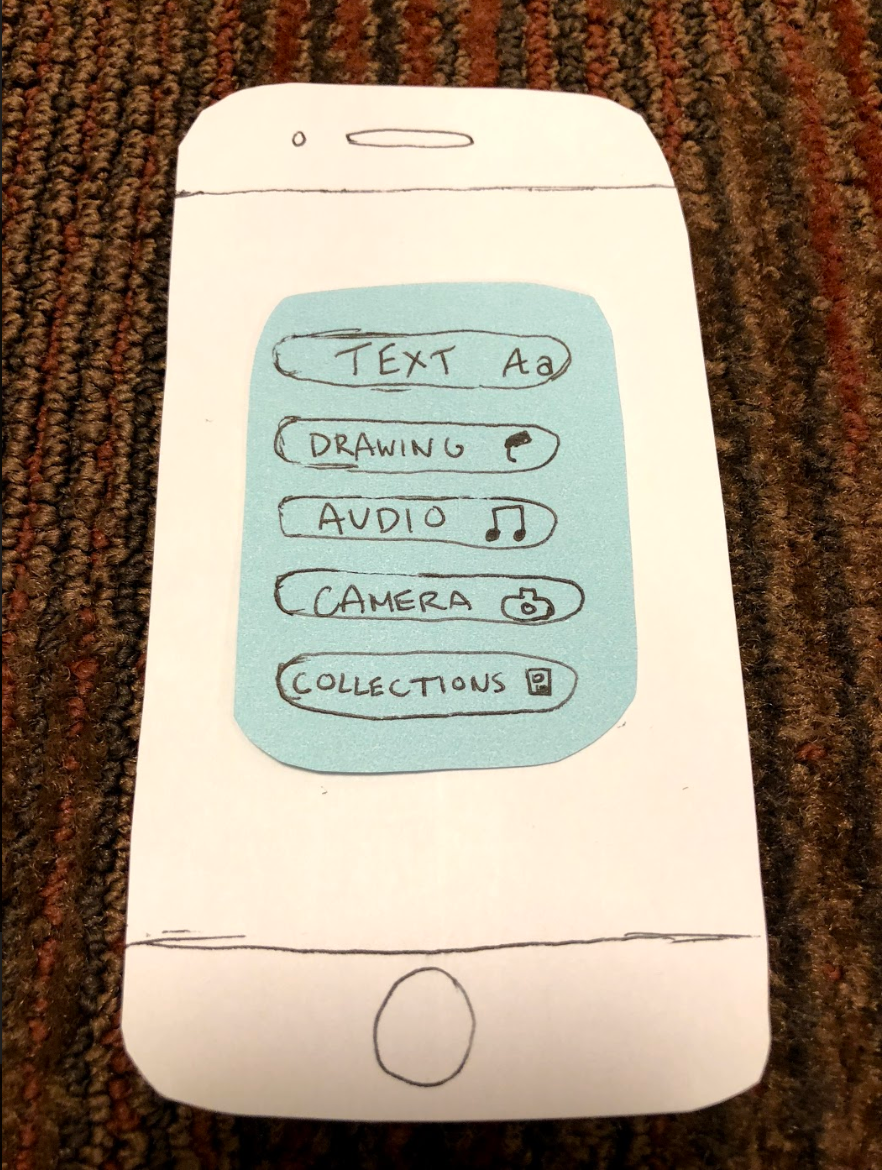 TEXT Aa
DRAWING
AUDIO
CAMERA
COLLECTIONS P